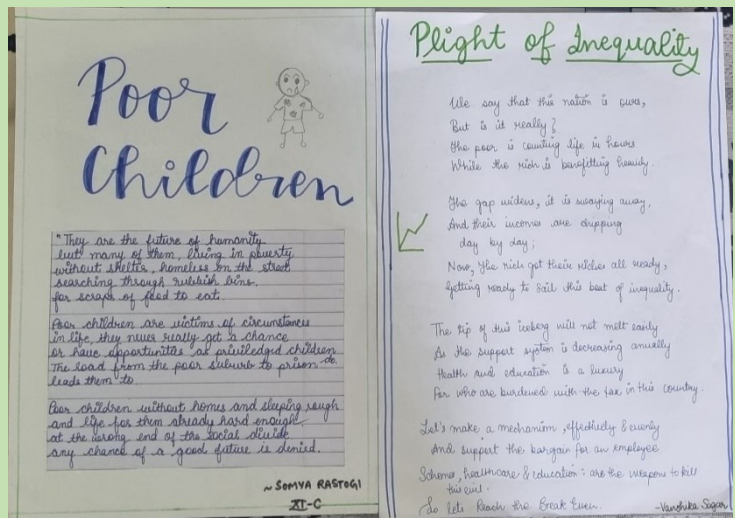 Poor
Children
"They are the future of humanity
but many of them, living in poverty
without shelter, homeless on the street
searching through rubbish bins.
for scraps of food to eat.
Poor children are victims of circumstances
in life, they never really get a chance
or have opportunities as priviledged children
The load from the poor suburb to prison do
leads them to
Poor children without homes and sleeping rough
and life for them already hard enough
at the wrong end of the social divide
any chance of a good future is denied.
~ SOMYA RASTOGI
XI-C
Plight of Inequality
We say that this nation is ours,
But is it really?
The poor is counting life in hours
While the rich is benefitting heavily.
The gap widens, it is swaying away,
And their incomes are dripping
day by day;
Now, the rich got their riches all ready,
Getting ready to sail this boat of inequality.
The tip of this iceberg will not melt easily
As the support system is decreasing annually
Health and education is a luxury
For who are burdened with the tax in this country.
Let's make a mechanism, effectively & evenly
And support the bargain for an employee
Schemes, healthcare & education: are the weapons to kill
this evil.
So lets Reach the Break Even.
-Vanshika Sagar